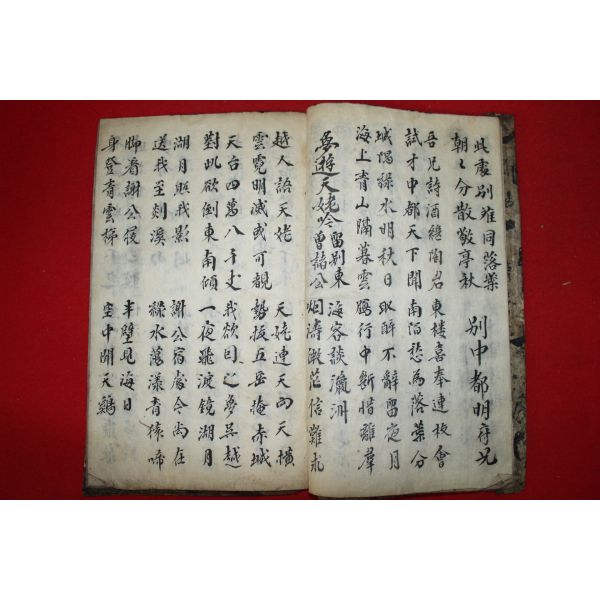 此處別離同落葉
朝〻分散敬亭秋
別中都明府兄
吾兄詩酒繼陶君 東樓喜奉連枝會
試才中都天下聞 南泊愁為落葉分
城隅綠水明秋日 取醉不辭留夜月
海上青山隔暮雲 鴈行中斷惜離群
夢遊天姥吟 留別東
曾諸公
海客談瀛洲
烟濤微茫信難求
越人語天姥 天姥連天向天橫
雲霓明滅或可覩 勢拔五岳掩赤城
天台四萬八千丈 我欲因之夢吳越
對此欲倒東南傾 一夜飛渡鏡湖月
湖月照我影 謝公宿處今尚在
送我至剡溪 綠水蕩漾青猿啼
脚着謝公屐 半壁見海日
身登青雲梯 空中聞天鷄